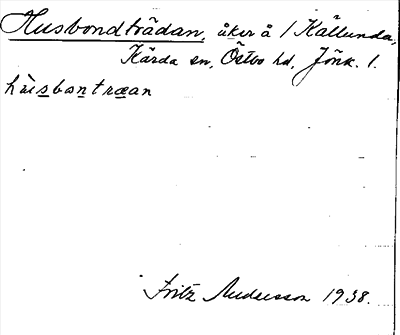 Husbondträdan, åker å 1 Källunda,
Kärda sn, Östbo hd, Jönk. l.
hùsbontræan
Fritz Andersson 1938.